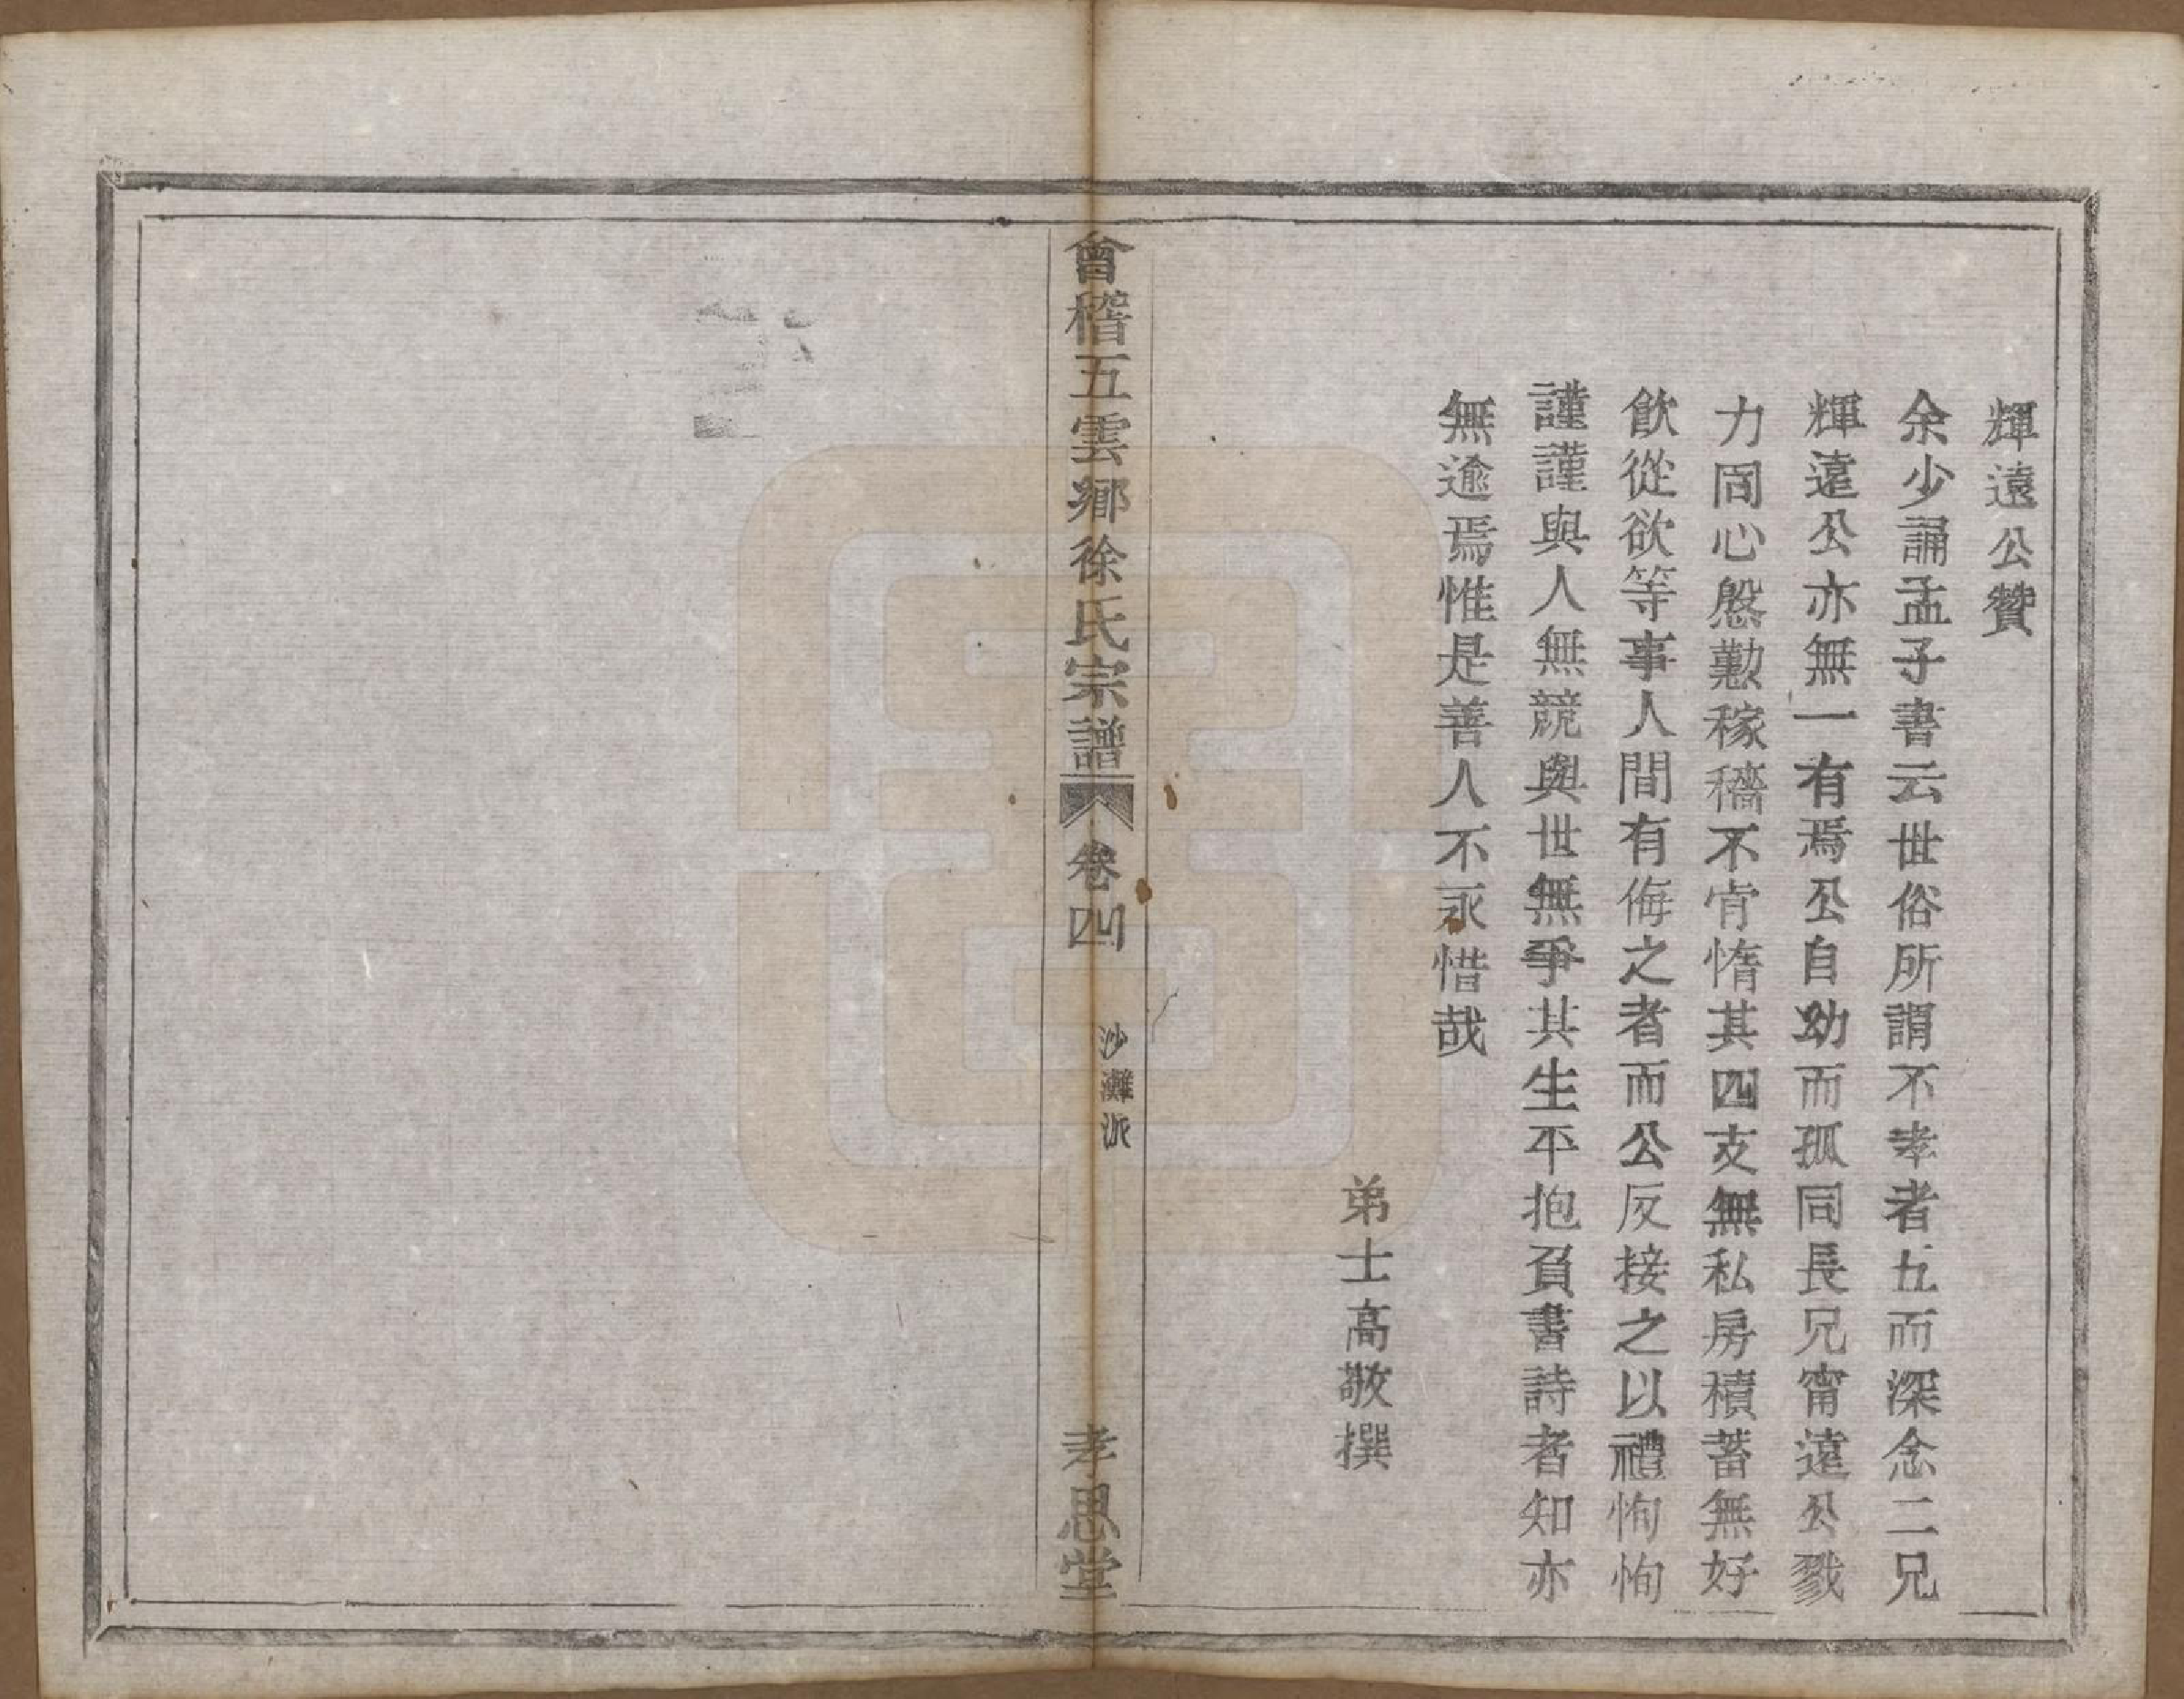 輝遠公贊
余少誦孟子書云世俗所謂不孝者五而深念二兄
輝遠公亦無一有焉公自幼而孤同長兄甯遠公戮
力同心慇懃稼穡不肯惰其四支無私房積蓄無好
飲從欲等事人間有侮之者而公反接之以禮恂恂
謹謹與人無競與世無爭其生平抱負書詩者知亦
無逾焉惟是善人不永惜哉
弟士高敬撰
會稽五雲鄉徐氏宗譜
卷四
沙灘派
孝思堂